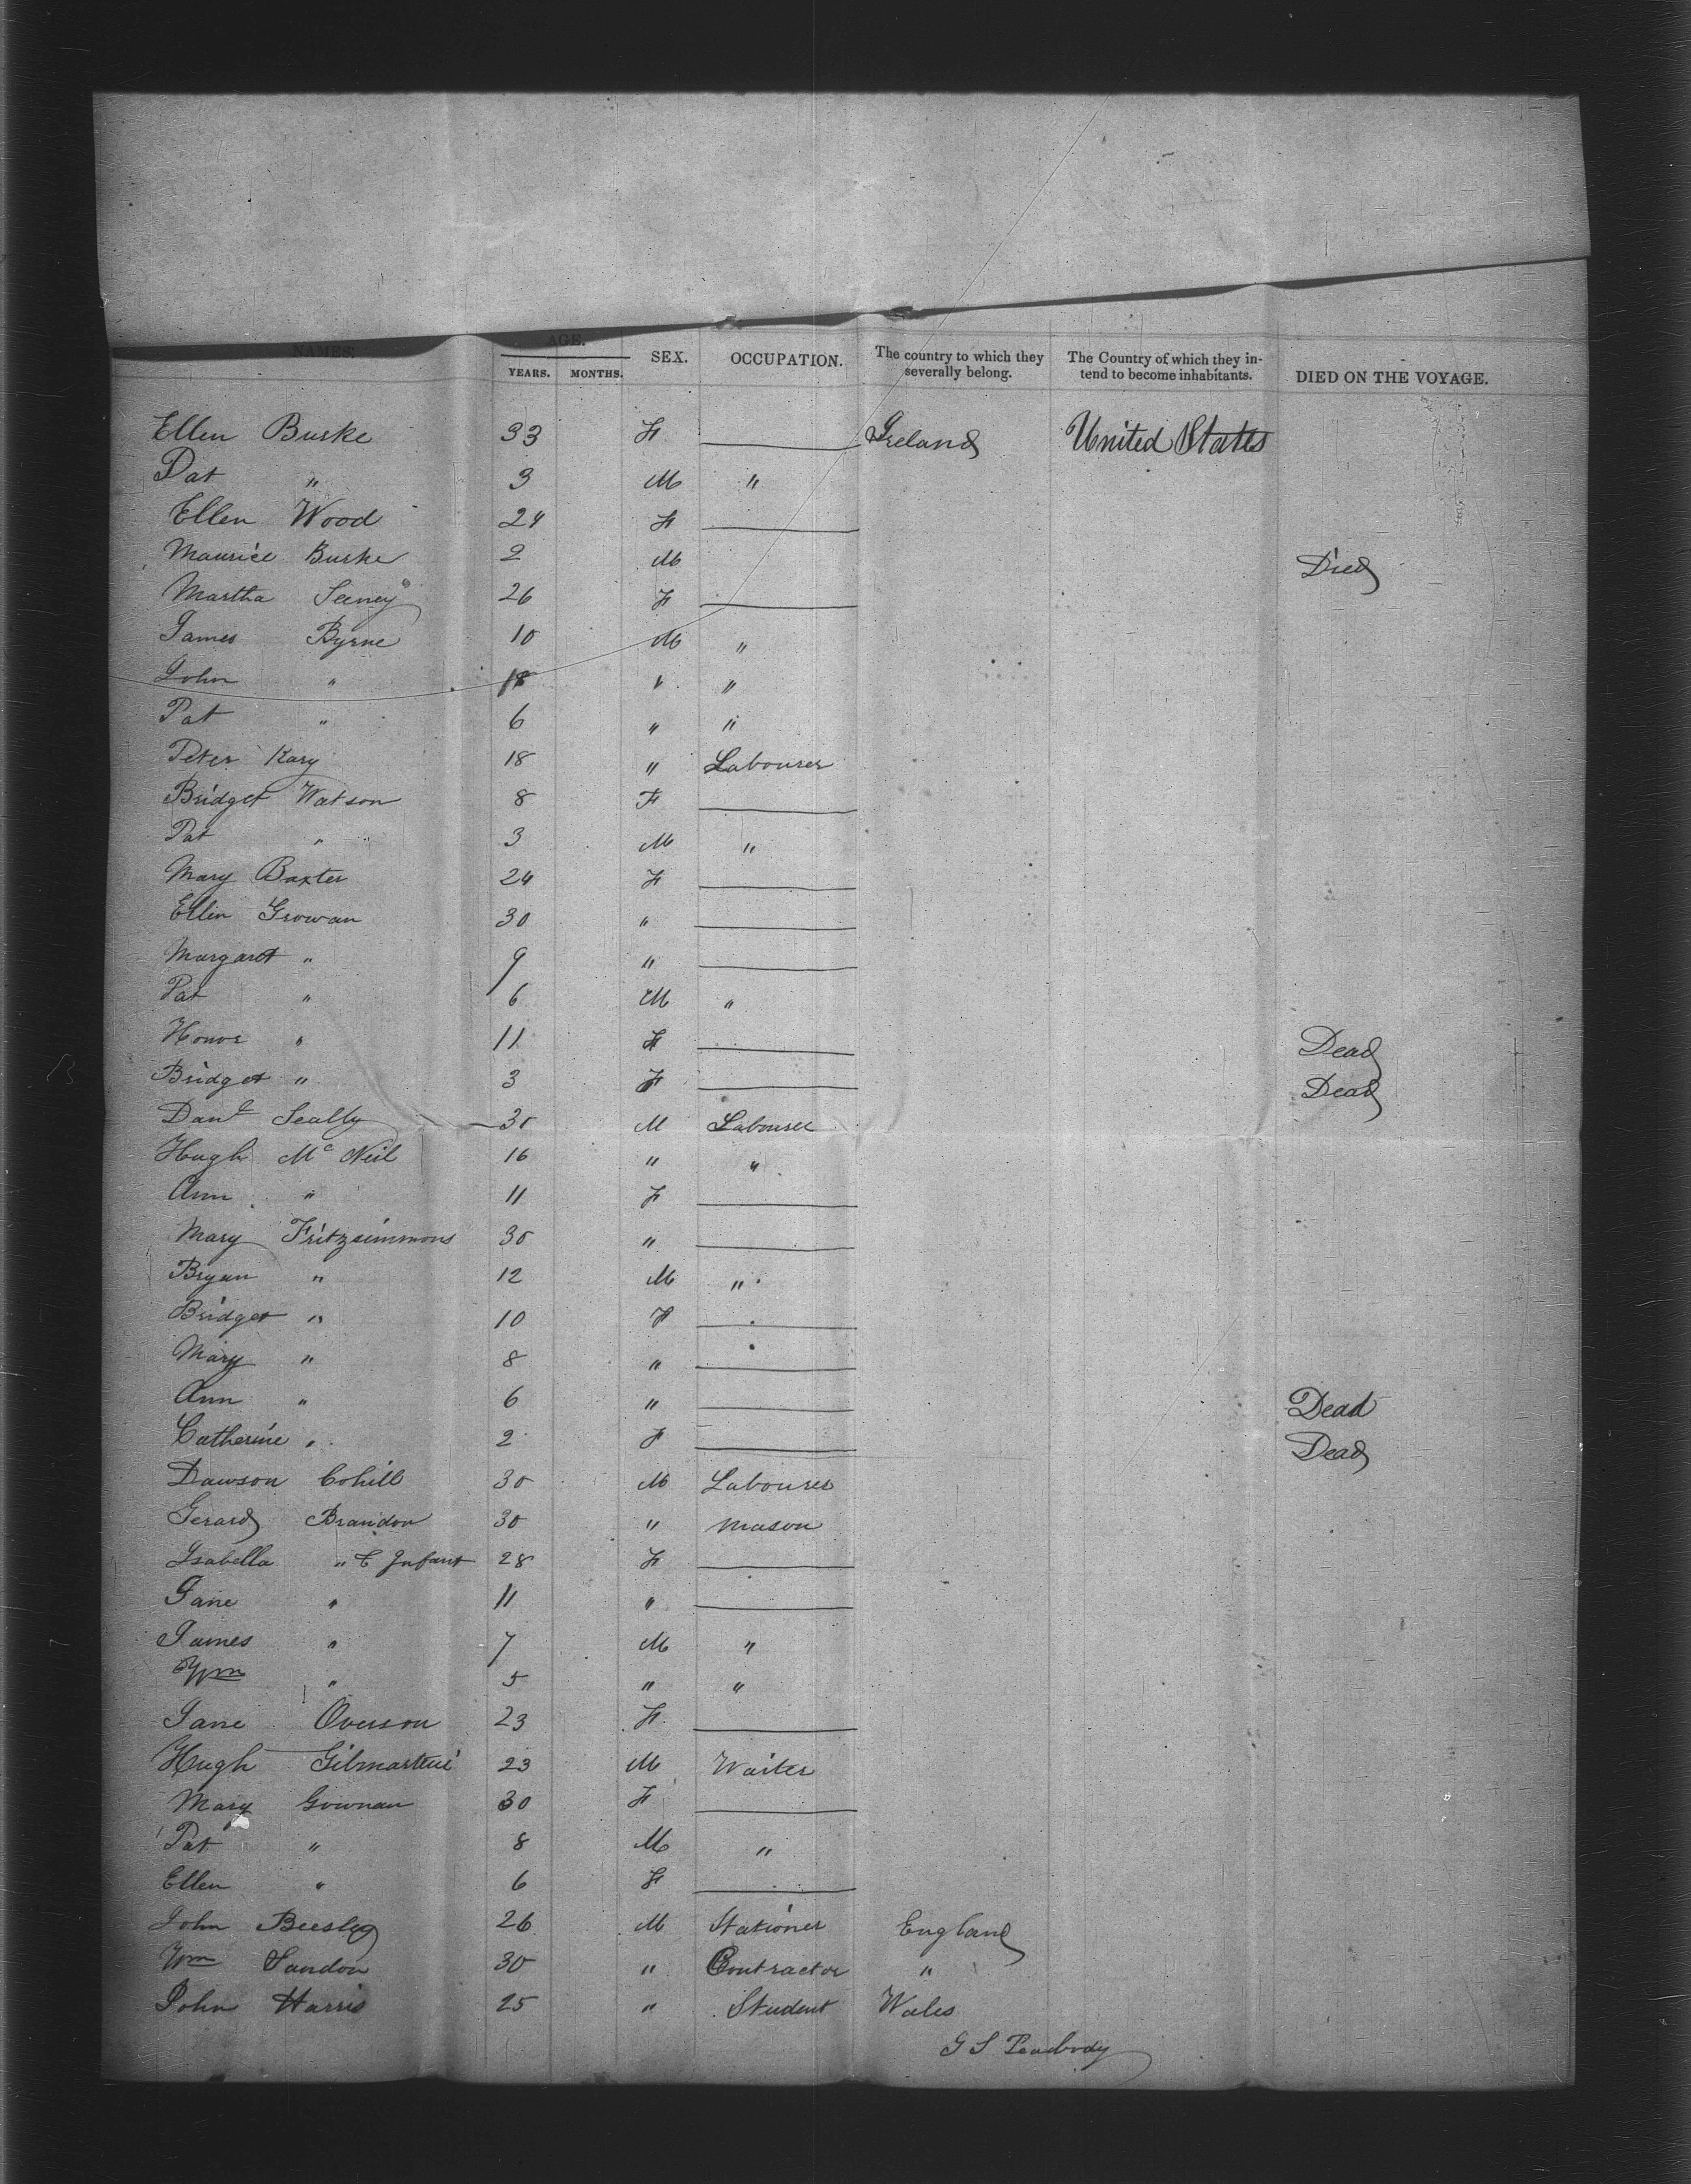 NAMES. AGE. SEX. OCCUPATION. The country to which they severally belong. The Country of which they in- tend to become inhabitants. DIED ON THE VOYAGE.
YEARS. MONTHS.
Ellen Burke 33 F Ireland United States
Pat " 3 M "
Ellen Wood 24 F
Maurice Burke 2 M Died
Martha 26 F
James Byrne 10 M "
John " " "
Pat " 6 " "
Peter Kary 18 " Labourer
Bridget Watson 8 F
Pat " 3 M "
Mary Baxter 24 F
Ellen Growan 30 "
Margaret " 9 "
Pat " 6 M "
Honor " 11 F Dead
Bridget " 3 F Dead
Danl Scally 30 M Labourer
Hugh Mc Neil 16 " "
Ann " 11 F
Mary Fritzsimmons 30 "
Bryan " 12 M "
Bridget " 10 F
Mary " 8 "
Ann " 6 " Dead
Catherine " 2 F Dead
Dawson Cohill 30 M Labourer
Gerard Brandon 30 " Mason
Isabella " & Infant 28 F
Jane " 11 "
James " 7 M "
Wm " 5 " "
Jane Overson 23 F
Hugh 23 M Waiter
Mary Gownan 30 F
Pat " 8 M "
Ellen " 6 F
John Beesley 26 M Stationer England
Wm Sandon 30 " Contractor "
John Harris 25 " Student Wales
G S Peabody